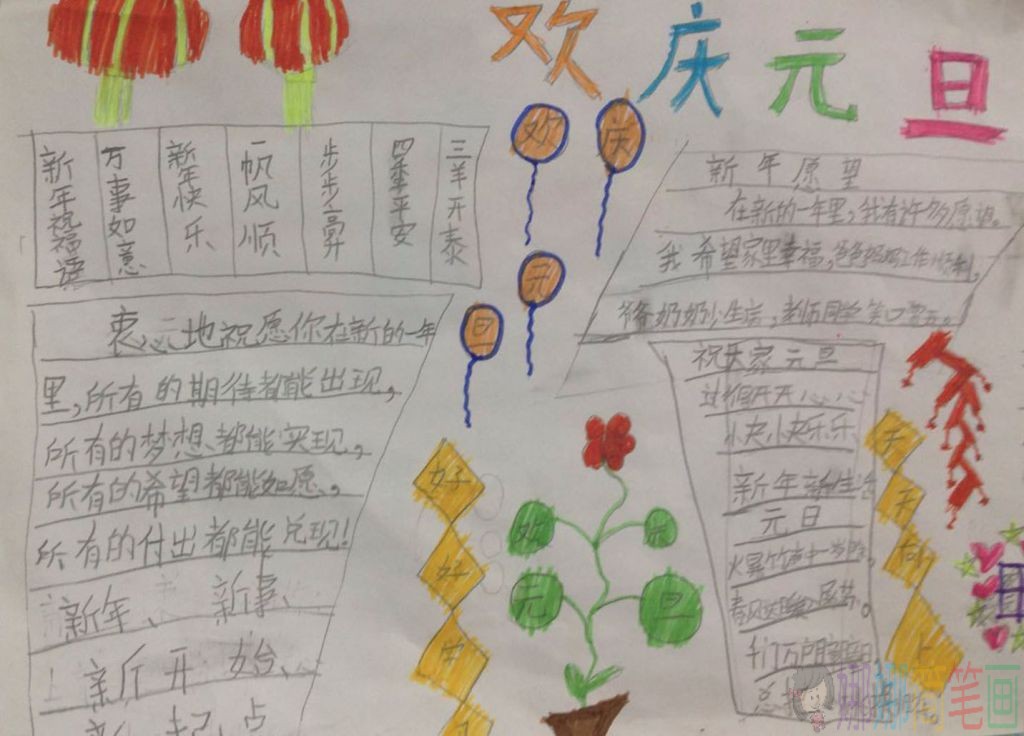 欢庆元旦
新年祝福语
万事如意
新年快乐
一帆风顺
步步高升
四季平安
三羊开泰
欢
庆
元
旦
新年愿望
在新的一年里,我有许多愿望。
我希望家里幸福,爸爸妈妈工作顺利,
爷爷奶奶
老师同学笑口常开。
衷心地祝愿你在新的一年
里,所有的期待都能出现,
所有的梦想都能实现,
所有的希望都能如愿,
所有的付出都能兑现!
新年、新事、
新开始、
新起点
祝大家元旦
过得开开心心
快快乐乐
新年新生活
元旦
火暴竹声中一岁除,
春风送暖入屠苏。
千门万户
好
好
天
天
向
上
欢
元
元
旦